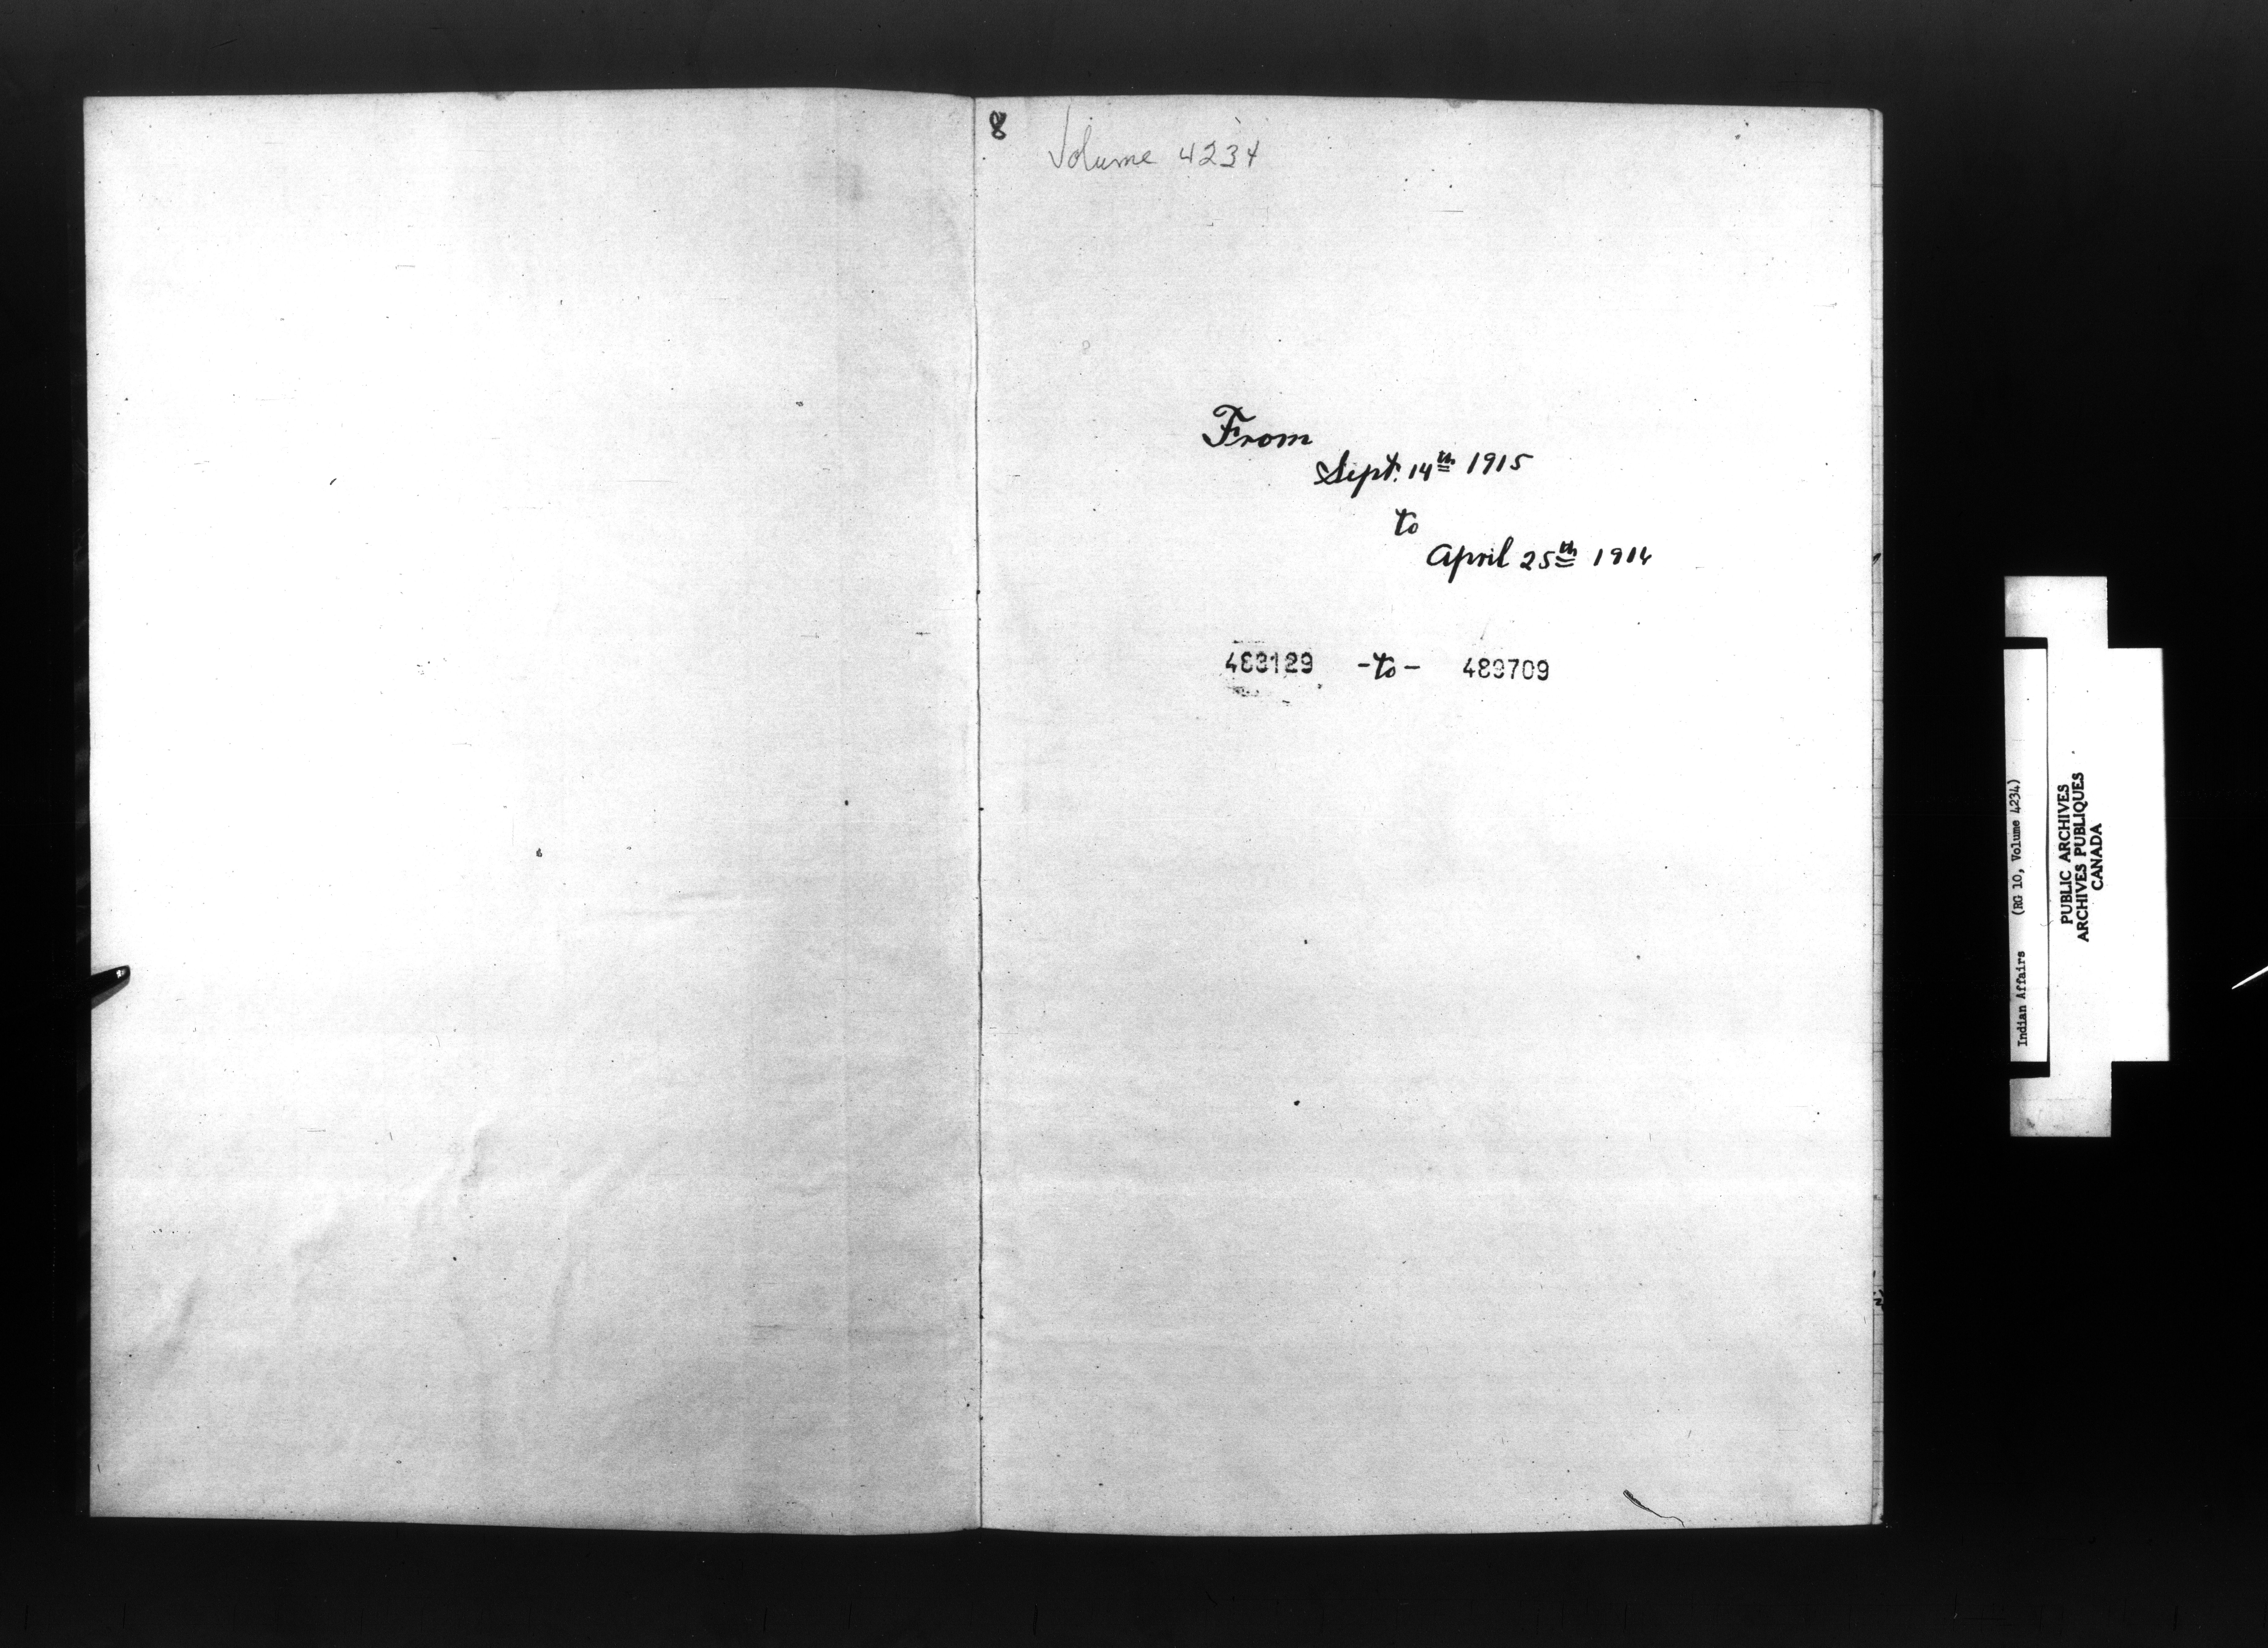 8
Volume 4234
From
Sept. 14th 1915
to
April 25th 1916
483129 -to- 489709
Indian Affairs (RG 10, Volume 4234)
PUBLIC ARCHIVES
ARCHIVES PUBLIQUES
CANADA